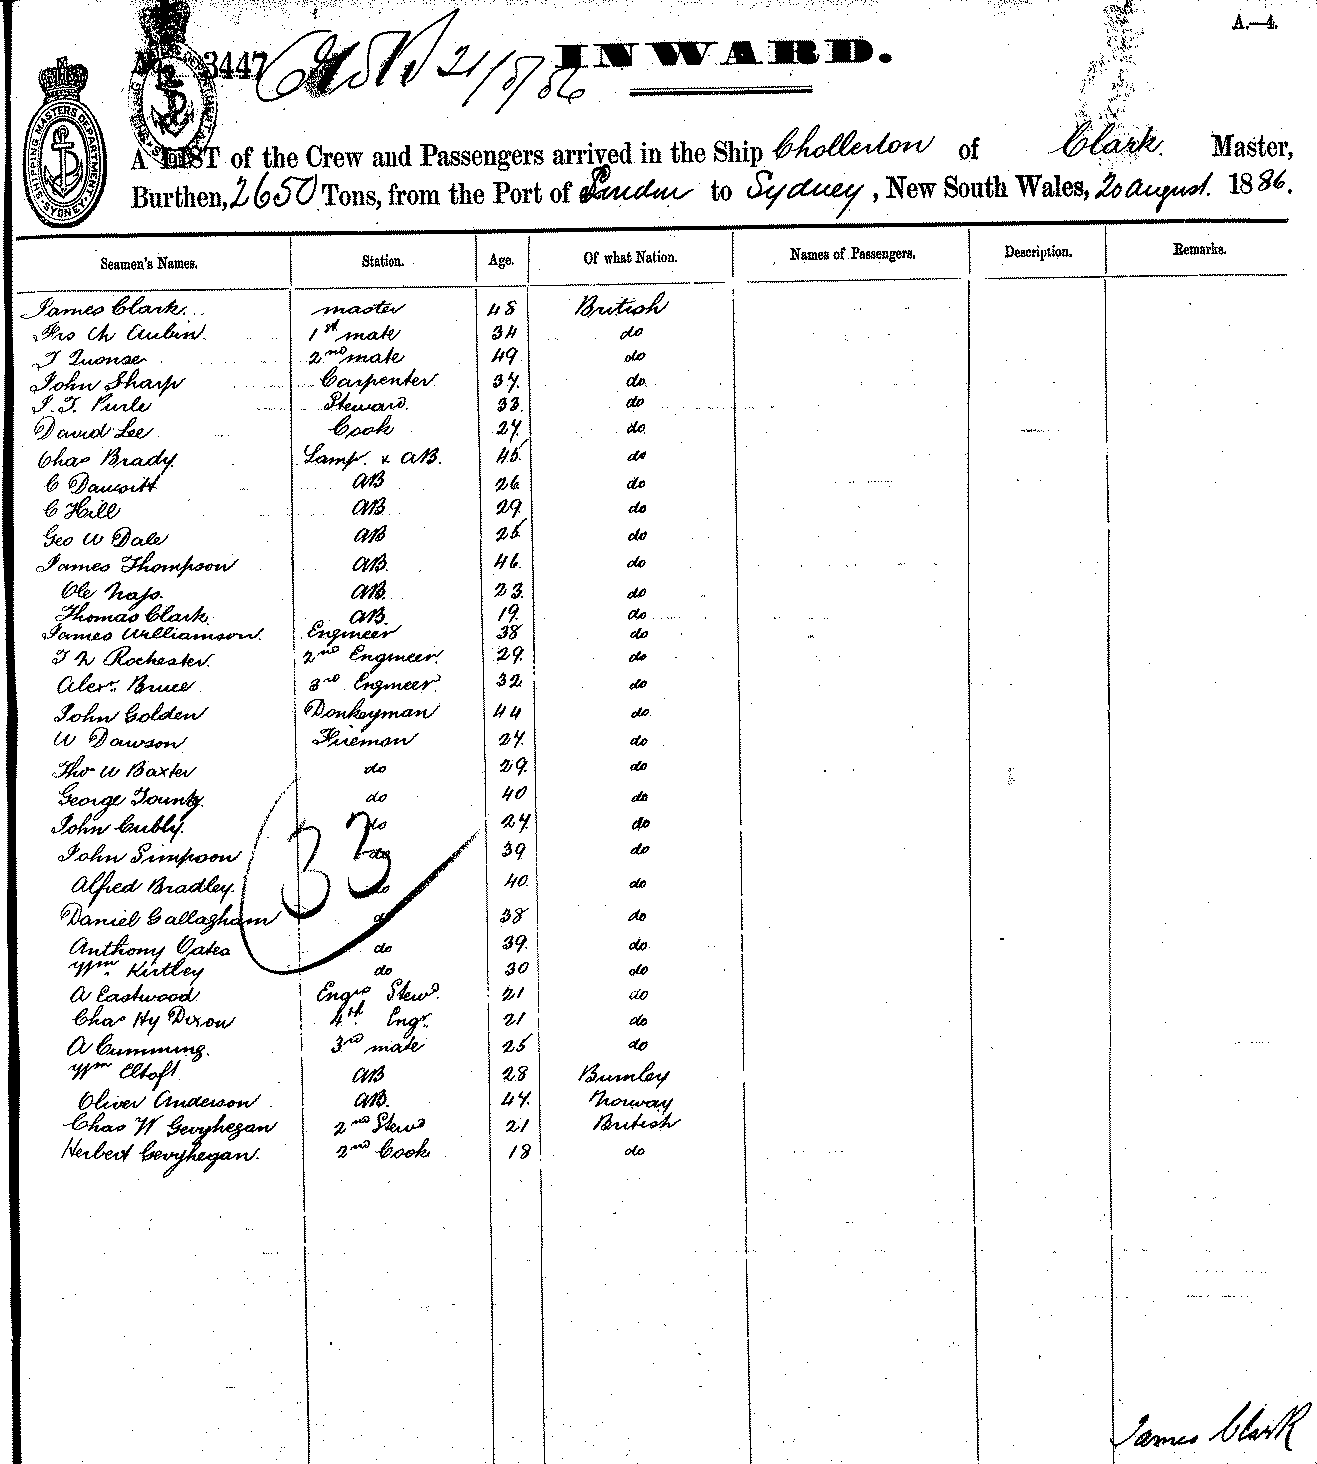 A.—4.
No. 3447 21/8/86 INWARD.
SHIPPING MASTERS DEPARTMENT SYDNEY
A LIST of the Crew and Passengers arrived in the Ship Chollerton of Clark. Master,
Burthen, 2650 Tons, from the Port of London to Sydney, New South Wales, 20 August. 1886.
Seamen's Names. Station. Age. Of what Nation. Names of Passengers. Description. Remarks.
James Clark master 48 British
Aubin 1st mate 34 do
2nd mate 49 do
John Sharp Carpenter 37 do
Purle Steward 33 do
David Lee Cook 27 do
Chas Brady Lamp. & AB. 45 do
C AB 26 do
C Hill AB 29 do
Geo W Dale AB 25 do
James Thompson AB. 46 do
Ole AB. 23 do
Thomas Clark AB. 19 do
James Williamson Engineer 38 do
Rochester 2nd Engineer 29 do
Alexr. Bruce 3rd Engineer 32 do
John Golden Donkeyman 44 do
W Dawson Fireman 27 do
Thos W Baxter do 29 do
George do 40 do
John Cubly do 27 do
33
John Simpson do 39 do
Alfred Bradley do 40 do
Daniel Gallagham do 38 do
Anthony Oates do 39 do
Wm. Kirtley do 30 do
A Eastwood Engrs Stewd. 21 do
Chas Hy Dixon 4th. Engr. 21 do
A Cumming 3rd mate 25 do
Wm Eltoft AB 28 Burnley
Oliver Anderson AB. 47 Norway
Chas W Gevghegan 2nd Stewd 21 British
Herbert Gevghegan. 2nd Cook 18 do
James Clark